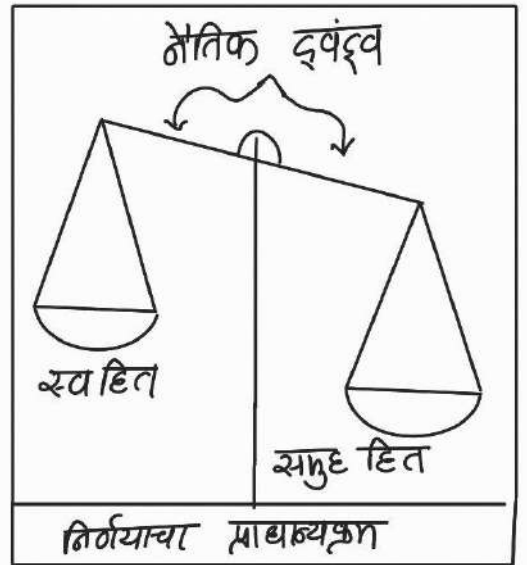 नैतिक द्वंद्व
स्व हित
समुह हित
निर्णयाचा प्राधान्यक्रम